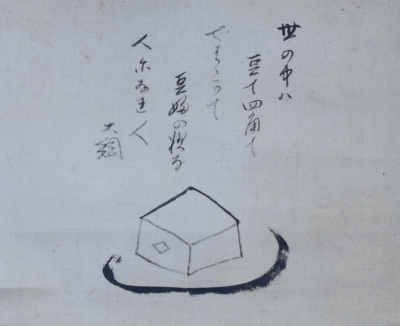 世の中ハ
豆て四角て
やわらかて
豆婦の様な
人になれ人
大綱